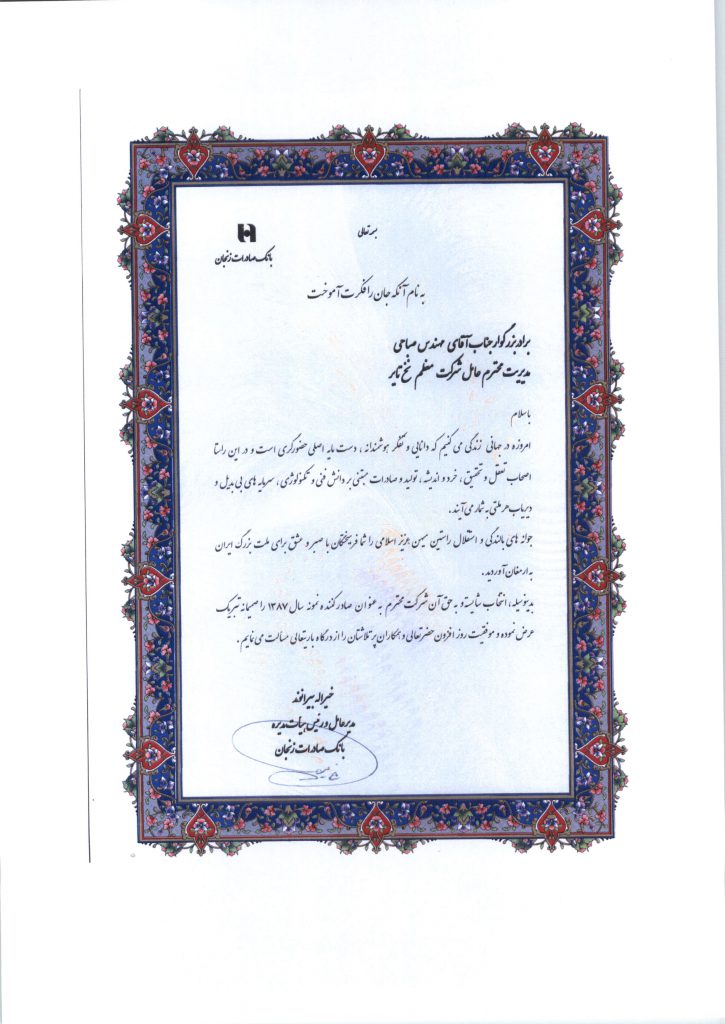 بسمه تعالی
بانک صادرات زنجان
به نام آنکه جان را فکرت آموخت
برادر بزرگوار جناب آقای مهندس صباحی
مدیریت محترم عامل شرکت معظم نخ تایر
باسلام
امروزه در جهانی زندگی می کنیم که دانایی و تفکر هوشمندانه ، دست مایه اصلی حضورگری است و در این راستا
اصحاب تعقل و تحقیق ، خرد و اندیشه ، تولید و صادرات مبتنی بر دانش فنی و تکنولوژی ، سرمایه های بی بدیل و
دیریاب هر ملتی به شمار می آیند .
جوانه های بالندگی و استقلال راستین میهن عزیز اسلامی را شما فرهیختگان با صبر و عشق برای ملت بزرگ ایران
به ارمغان آوردید .
بدینوسیله ، انتخاب شایسته و به حق آن شرکت محترم به عنوان صادر کننده نمونه سال ۱۳۸۷ را صمیمانه تبریک
عرض نموده و موفقیت روز افزون حضرتعالی و همکاران پر تلاشتان را از درگاه باریتعالی مسالت می نمایم .
خیراله بیرانوند
مدیرعامل و رئیس هیأت مدیره
بانک صادرات زنجان